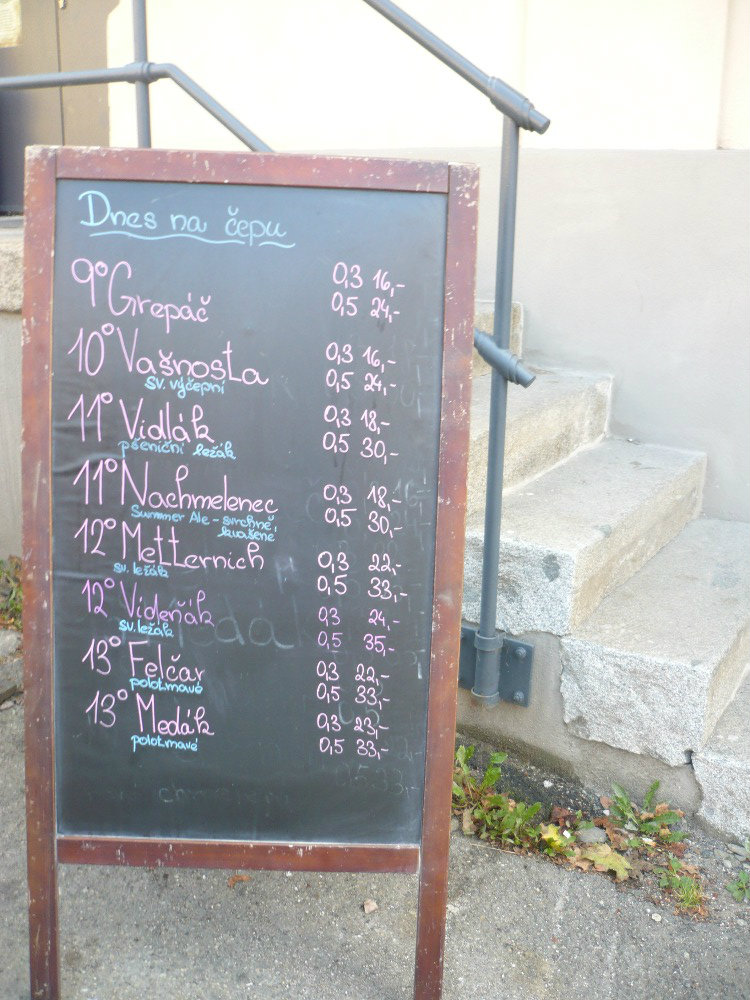 Dnes na čepu
9° Grepáč 0,3 16,-
0,5 24,-
10° Vašnosta 0,3 16,-
sv. výčepní 0,5 24,-
11° Vidlák 0,3 18,-
pšeniční ležák 0,5 30,-
11° Nachmelenec 0,3 18,-
Summer Ale - svrchně 0,5 30,-
kvašené
12° Metternich 0,3 22,-
sv. ležák 0,5 33,-
12° Vídeňák 0,3 24,-
sv. ležák 0,5 35,-
13° Felčar 0,3 22,-
polotmavé 0,5 33,-
13° Medák 0,3 23,-
polotmavé 0,5 33,-